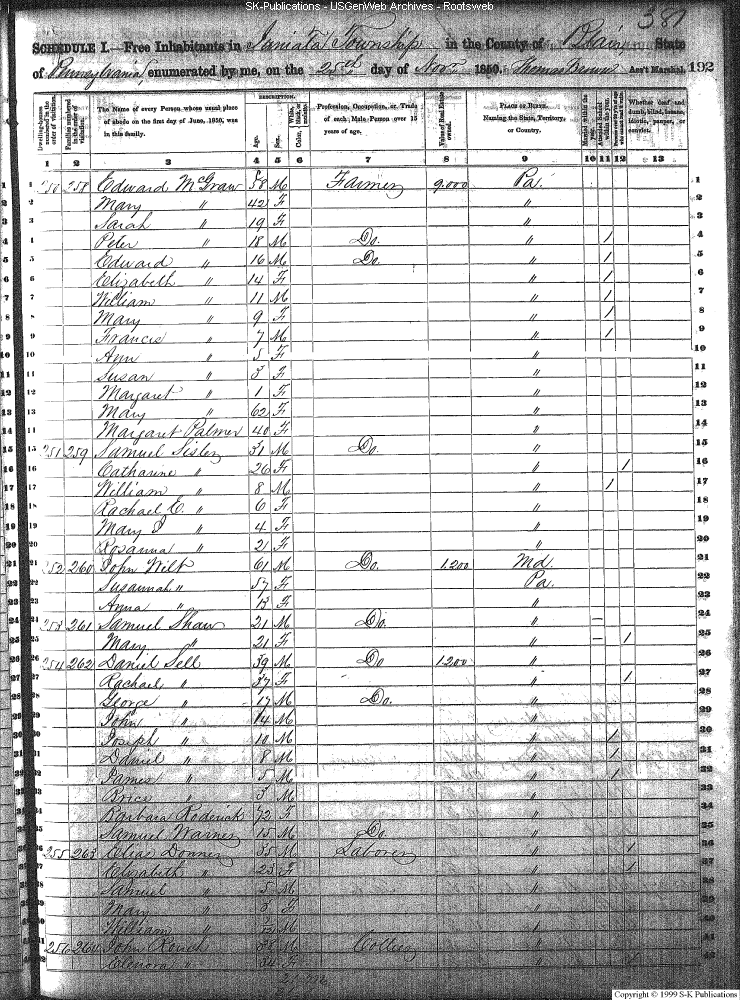 SK-Publications - USGenWeb Archives - Rootsweb
381
SCHEDULE I.—Free Inhabitants in Juniata Township in the County of Blair State
of Pennsylvania, enumerated by me, on the 25th day of Novr 1850. Thomas Brown Ass't Marshal. 192
DESCRIPTION.
Dwelling-houses numbered in the order of visitation.
Families numbered in the order of visitation.
The Name of every Person whose usual place of abode on the first day of June, 1850, was in this family.
Age.
Sex.
Color, White, black, or mulatto.
Profession, Occupation, or Trade of each Male Person over 15 years of age.
Value of Real Estate owned.
PLACE OF BIRTH. Naming the State, Territory, or Country.
Married within the year.
Attended School within the year.
Whether deaf and dumb, blind, insane, idiotic, pauper, or convict.
1 2 3 4 5 6 7 8 9 10 11 12 13
1 250 258 Edward McGraw 58 M Farmer 9,000 Pa. 1
2 Mary " 42 F " 2
3 Sarah " 19 F " 3
4 Peter " 18 M Do. " / 4
5 Edward " 16 M Do. " / 5
6 Elizabeth " 14 F " / 6
7 William " 11 M " / 7
8 Mary " 9 F " / 8
9 Francis " 7 M " / 9
10 Ann " 5 F " 10
11 Susan " 3 F " 11
12 Margaret " 1 F " 12
13 Mary " 62 F " 13
14 Margaret Palmer 40 F " 14
15 251 259 Samuel Sisler 31 M Do. " 15
16 Catharine " 26 F " / 16
17 William " 8 M " / 17
18 Rachael E. " 6 F " 18
19 Mary " 4 F " 19
20 Rosanna " 21 F " 20
21 252 260 John Wilt 61 M Do. 1,200 Md. 21
22 Susannah " 57 F Pa. 22
23 Anna " 13 F " 23
24 253 261 Samuel Shaw 21 M Do. " – 24
25 Mary " 21 F " – / 25
26 254 262 Daniel Sell 39 M Do 1,200 " 26
27 Rachael " 37 F " / 27
28 George " 17 M Do. " 28
29 John " 14 M " 29
30 Joseph " 10 M " / 30
31 Daniel " 8 M " / 31
32 James " 5 M " / 32
33 " 3 M " 33
34 Barbara Roderick 72 F " 34
35 Samuel Warner 15 M Do. " 35
36 255 263 Elias Donner 35 M Laborer " / 36
37 Elizabeth " 25 F " / 37
38 Samuel " 5 M " 38
39 Mary " 3 F " 39
40 William " M " 40
41 256 264 John 38 M Collier " 41
42 Elenora " 34 F " 42
Copyright © 1999 S-K Publications